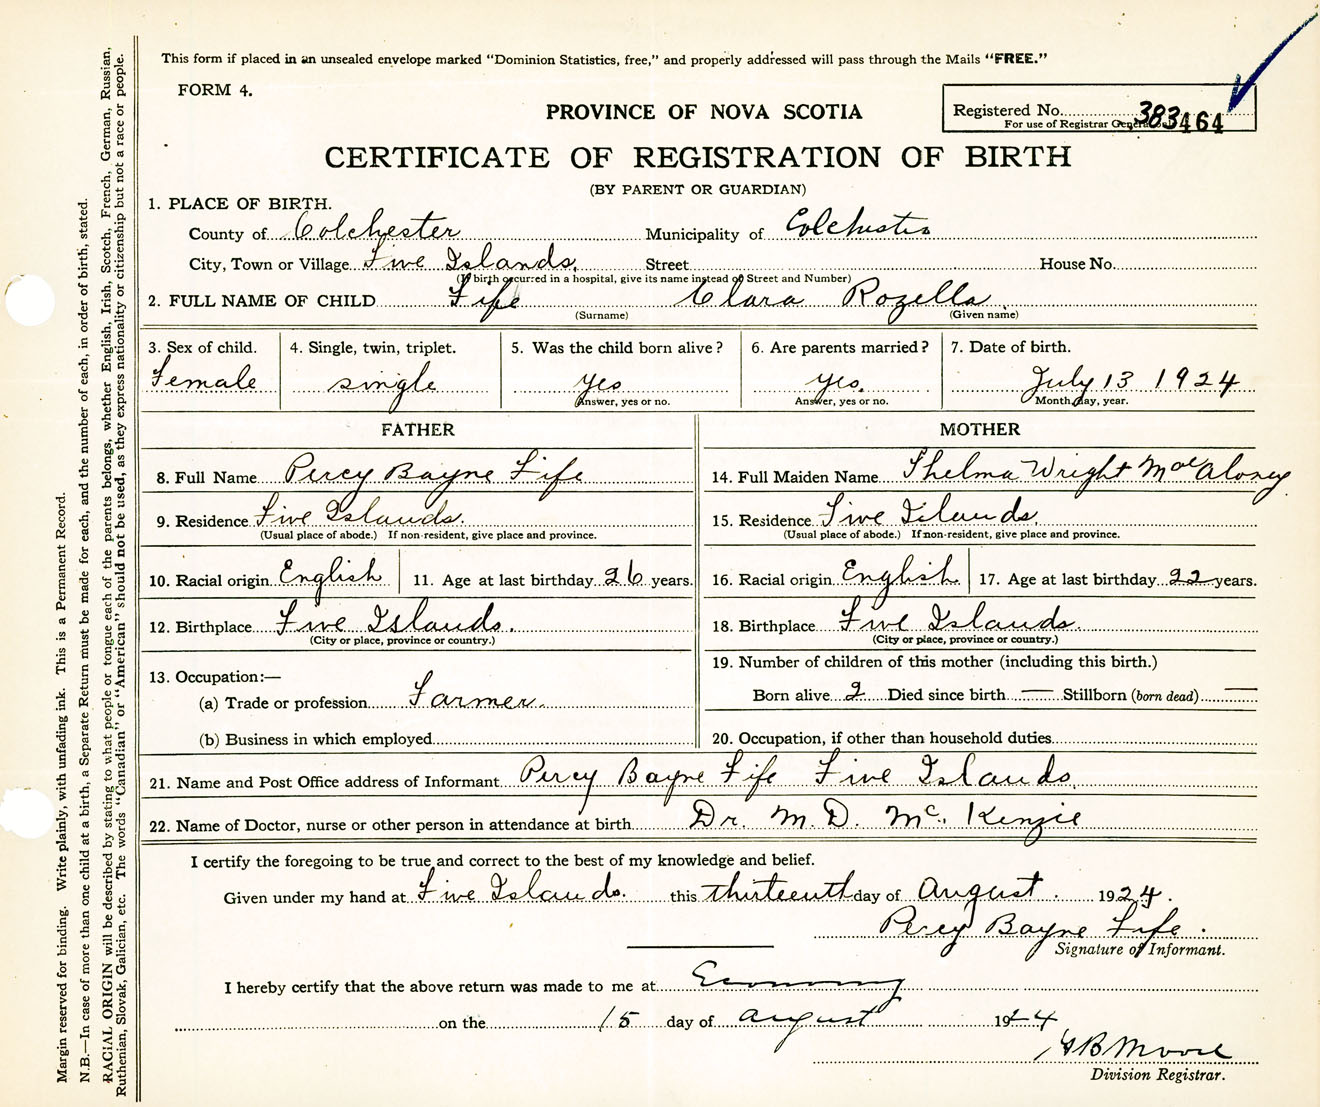 This form if placed in an unsealed envelope marked “Dominion Statistics, free,” and properly addressed will pass through the Mails “FREE.”
FORM 4.
PROVINCE OF NOVA SCOTIA
Registered No. 383464
For use of Registrar General
CERTIFICATE OF REGISTRATION OF BIRTH
(BY PARENT OR GUARDIAN)
1. PLACE OF BIRTH.
County of Colchester Municipality of Colchester
City, Town or Village Five Islands. Street House No.
(If birth occurred in a hospital, give its name instead of Street and Number)
2. FULL NAME OF CHILD Fife Clara Rozella
(Surname) (Given name)
3. Sex of child. 4. Single, twin, triplet. 5. Was the child born alive? 6. Are parents married? 7. Date of birth.
Female single yes yes. July 13 1924
Answer, yes or no. Answer, yes or no. Month, day, year.
FATHER MOTHER
8. Full Name Percy Bayne Fife 14. Full Maiden Name Thelma Wright MacAloney
9. Residence Five Islands. 15. Residence Five Islands.
(Usual place of abode.) If non-resident, give place and province. (Usual place of abode.) If non-resident, give place and province.
10. Racial origin English 11. Age at last birthday 26 years. 16. Racial origin English. 17. Age at last birthday 22 years.
12. Birthplace Five Islands. 18. Birthplace Five Islands.
(City or place, province or country.) (City or place, province or country.)
13. Occupation:— 19. Number of children of this mother (including this birth.)
(a) Trade or profession Farmer. Born alive 2 Died since birth — Stillborn (born dead) —
(b) Business in which employed 20. Occupation, if other than household duties
21. Name and Post Office address of Informant Percy Bayne Fife Five Islands.
22. Name of Doctor, nurse or other person in attendance at birth Dr. M. D. Mc. Kenzie
I certify the foregoing to be true and correct to the best of my knowledge and belief.
Given under my hand at Five Islands. this thirteenth day of August. 1924.
Percy Bayne Fife.
Signature of Informant.
I hereby certify that the above return was made to me at Economy
on the 15 day of August 1924
Moore
Division Registrar.
Margin reserved for binding. Write plainly, with unfading ink. This is a Permanent Record.
N.B.—In case of more than one child at a birth, a Separate Return must be made for each, and the number of each, in order of birth, stated.
RACIAL ORIGIN will be described by stating to what people or tongue each of the parents belongs, whether English, Irish, Scotch, French, German, Russian,
Ruthenian, Slovak, Galician, etc. The words “Canadian” or “American” should not be used, as they express nationality or citizenship but not a race or people.